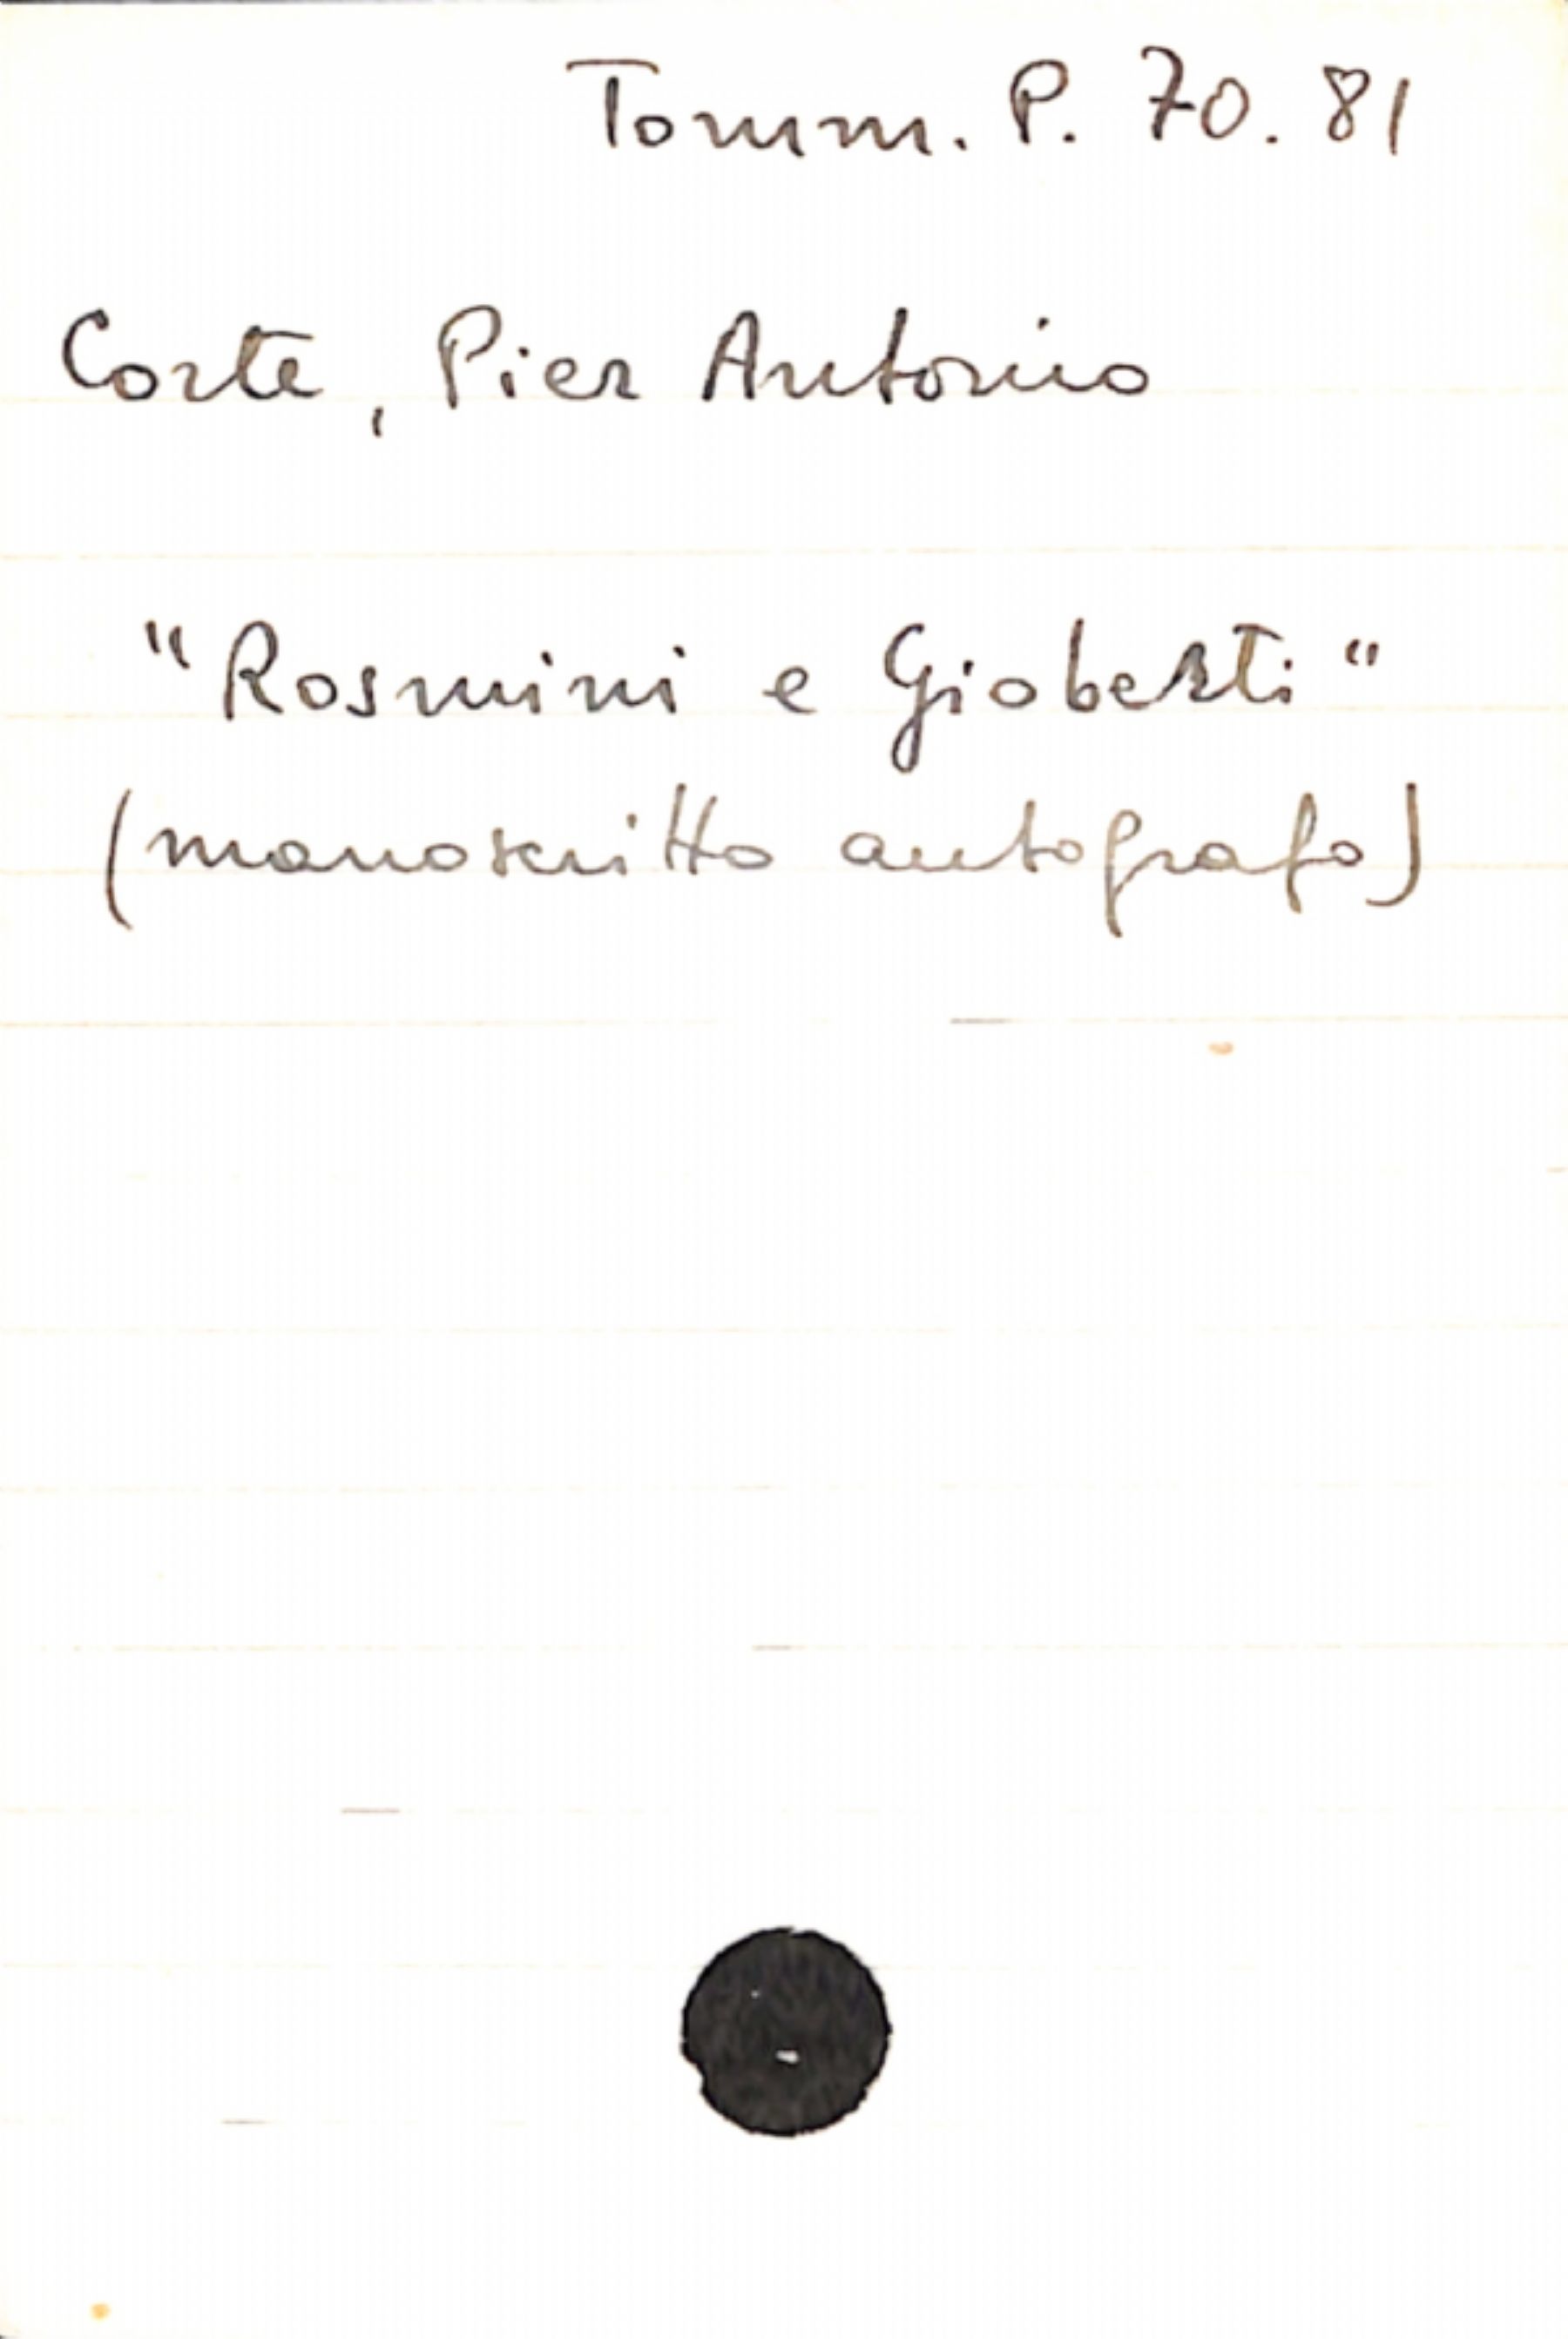 Tomm. P. 70. 81
Corte, Pier Antonio
"Rosmini e Gioberti"
(manoscritto autografo)